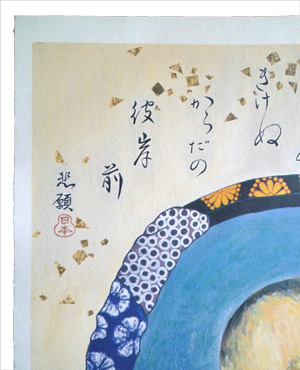 きけぬ
からだの
彼岸
前
悲願
日本